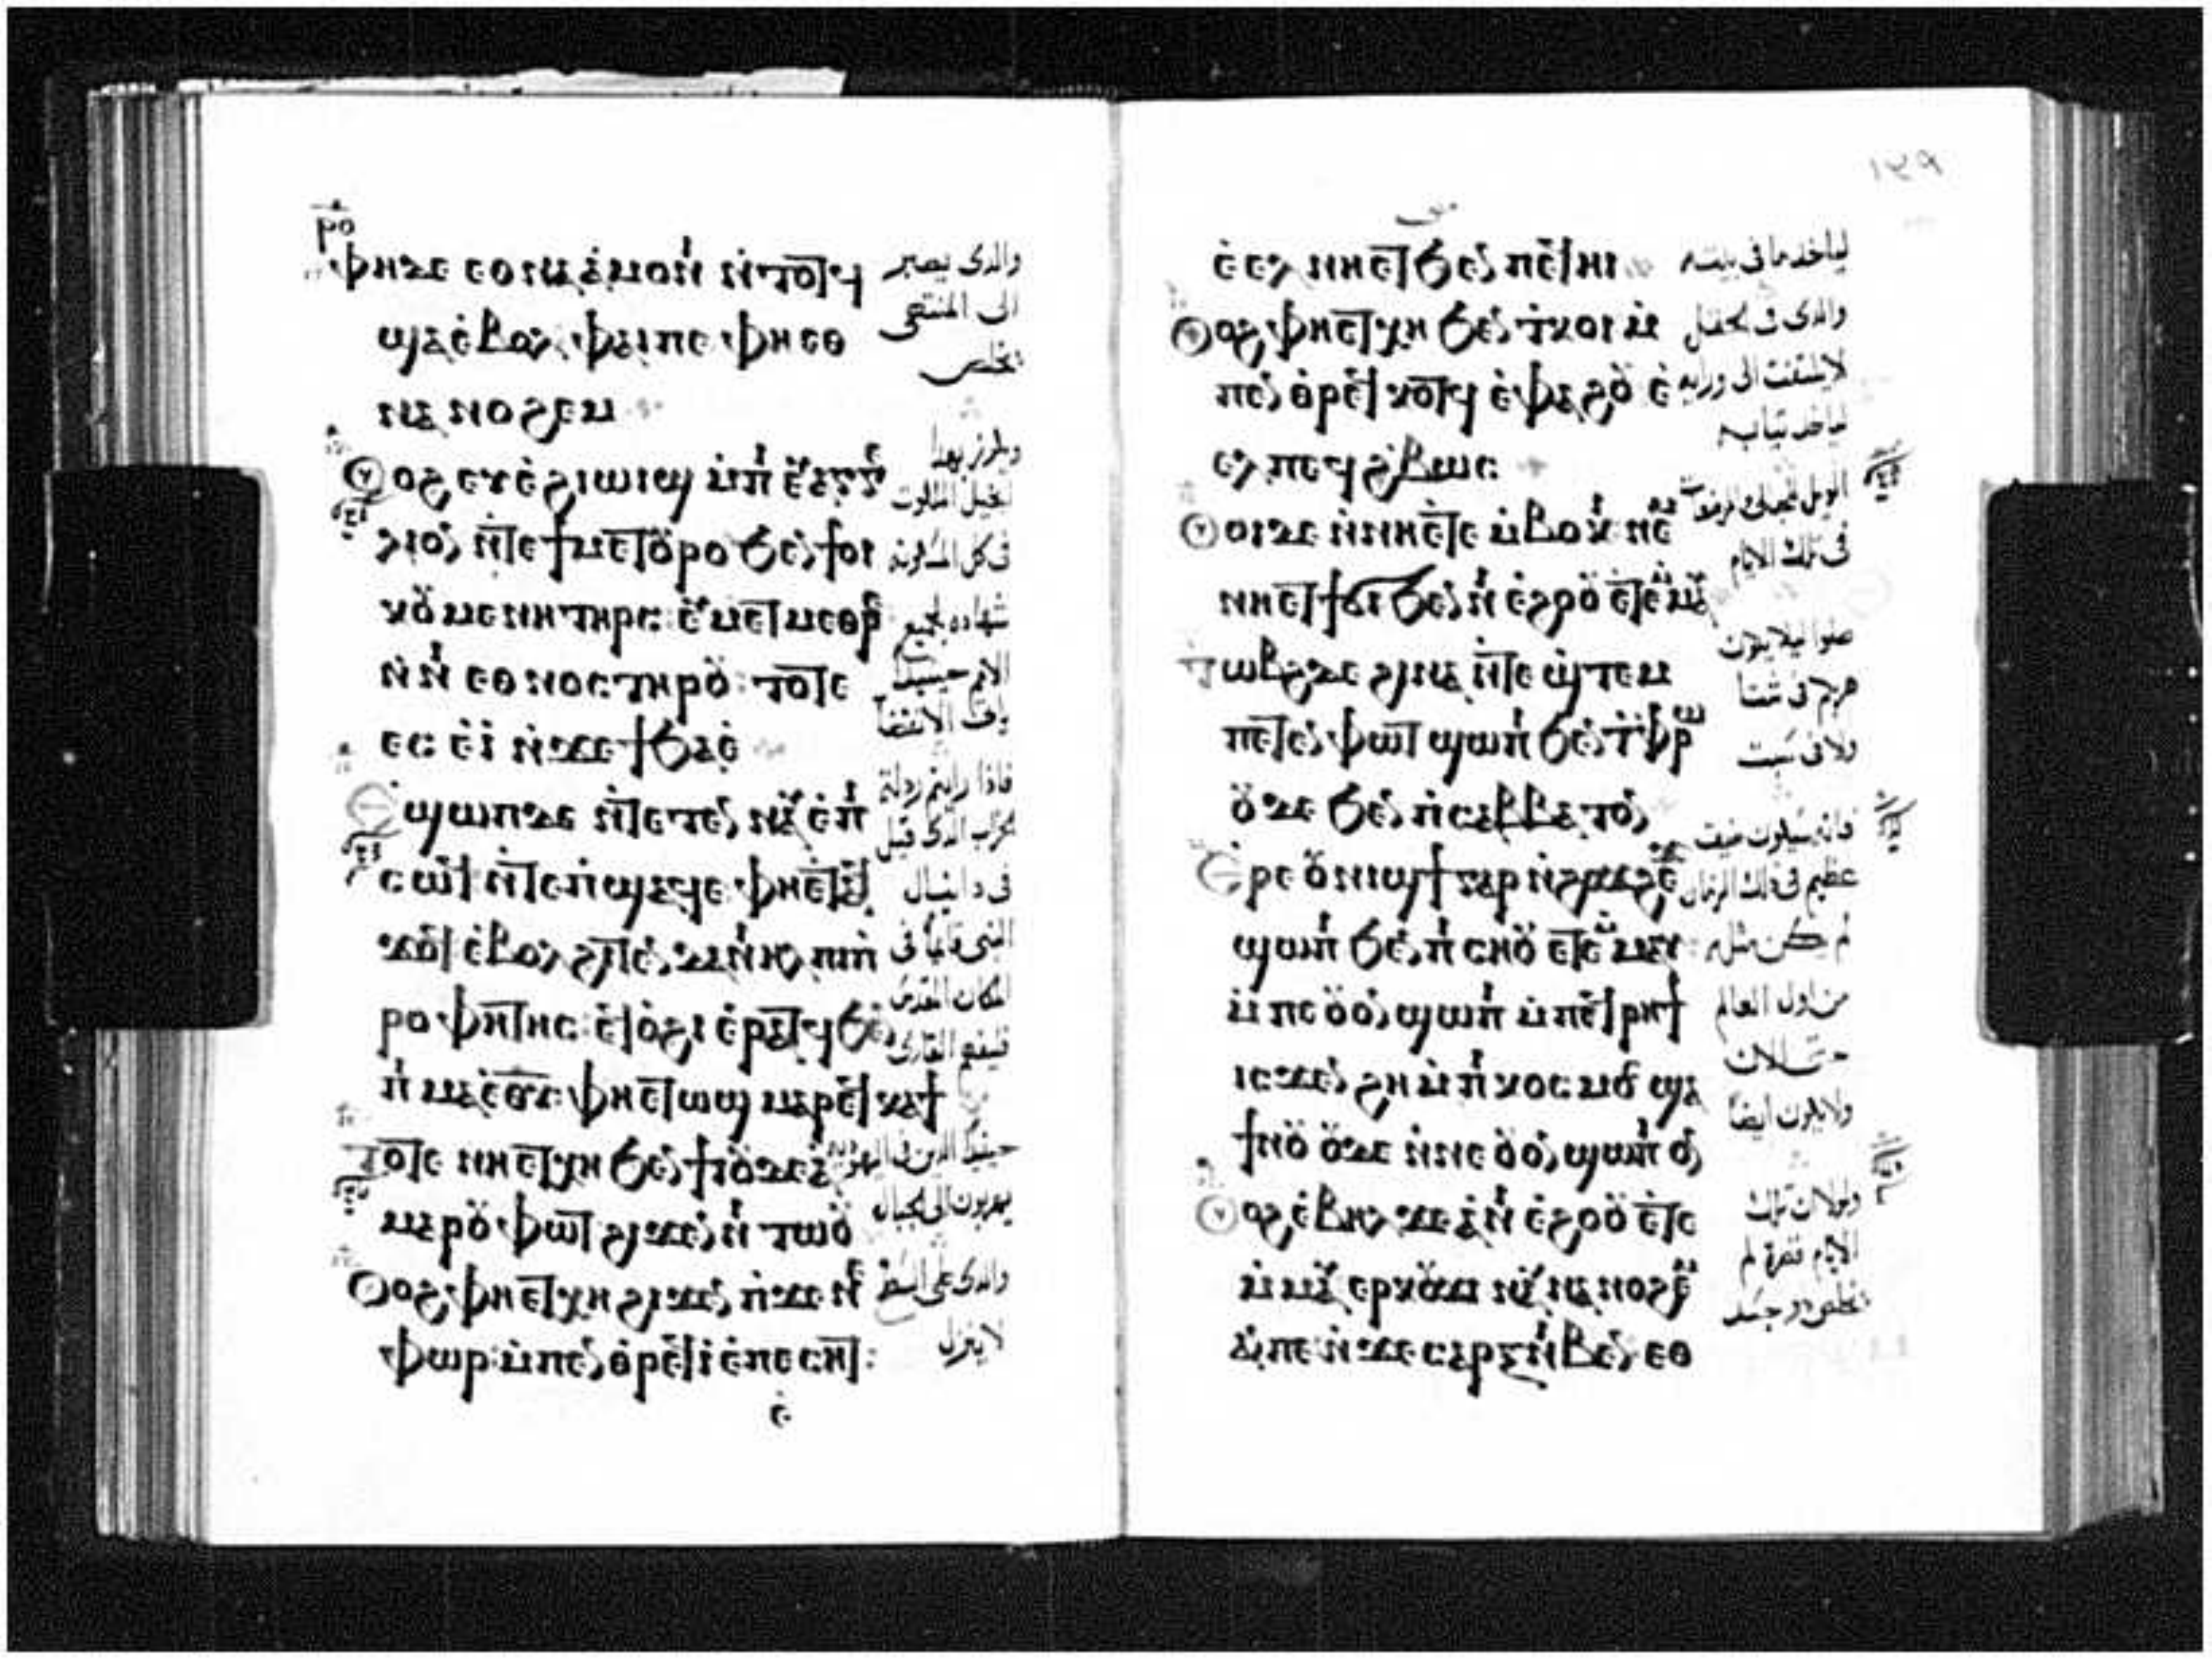 ⲣⲟ
ⲫⲏⲇⲉ ⲉⲑⲛⲁ̀ⲁ̀ⲙⲟⲛⲓ ⲛ̀ⲧⲟⲧϥ
ϣⲁⲉ̀ⲃⲟⲗ ⲫⲁⲓⲡⲉ ⲫⲏⲉⲑ
ⲛⲁⲛⲟϩⲉⲙ
ⲟⲩⲟϩ ⲉⲩⲉ̀ϩⲓⲱⲓϣ ⲙ̀ⲡⲓⲉⲩⲁⲅⲅⲉ
ⲗⲓⲟⲛ ⲛ̀ⲧⲉϯⲙⲉⲧⲟⲩⲣⲟ ϧⲉⲛϯⲟⲓ
ⲕⲟⲩⲙⲉⲛⲏ ⲧⲏⲣⲥ: ⲉⲩⲙⲉⲧⲙⲉⲑⲣⲉ
ⲛ̀ⲛⲓⲉⲑⲛⲟⲥ ⲧⲏⲣⲟⲩ: ⲧⲟⲧⲉ
ⲉⲥⲉ̀ⲓ̀ ⲛ̀ϫⲉϯϧⲁⲉ̀
ⲉϣⲱⲡ ⲇⲉ ⲛ̀ⲧⲉⲧⲉⲛⲛⲁⲩ ⲉ̀ⲡⲓ
ⲥⲱϥ ⲛ̀ⲧⲉⲡ̀ϣⲁϥⲉ ⲫⲏⲉⲧⲁⲩ
ϫⲟϥ ⲉ̀ⲃⲟⲗϩⲓⲧⲉⲛ ⲇⲁⲛⲓⲏⲗ ⲡⲓⲡ̀
ⲣⲟⲫⲏⲧⲏⲥ: ⲉϥⲟ̀ϩⲓ ⲉ̀ⲣⲁⲧϥ ϧⲉⲛ
ⲡⲓⲙⲁⲉ̀ⲑⲩ: ⲫⲏⲉⲧⲱϣ ⲙⲁⲣⲉϥⲕⲁϯ
ⲧⲟⲧⲉ ⲛⲏⲉⲧⲭⲏ ϧⲉⲛϯⲓⲟⲩⲇⲉⲁ̀
ⲙⲁⲣⲟⲩⲫⲱⲧ ϩⲓϫⲉⲛⲛⲓⲧⲱⲟⲩ
ⲟⲩⲟϩ ⲫⲏⲉⲧⲭⲏ ϩⲓϫⲉⲛ ⲡ̀ϫⲉⲛⲉ
ⲫⲱⲣ ⲙ̀ⲡⲉⲛⲑⲣⲉϥⲓ̀ ⲉ̀ⲡⲉⲥⲏⲧ:
ⲉ̀
والدى يصبر
الى المنتهى
يخلص
ويكرز بهدا
انجيل الملكوت
فى كل المسكونة
شهاده لجميع
الامم حينيدا
ياتى الانقضا
فاذا رايتم ردلة
الخراب الدى قيل
فى دانيال
النبى قايما فى
المكان المقدس
فليفهم القارى
حينيدا الدين فى اليهودية
يهربون الى الجبال
والدى على السطح
لا ينزل
١٤٩
ⲉ̀ⲉⲗ ⲛⲏⲉⲧϧⲉⲛ ⲡⲉϥⲏⲓ
ⲟⲩⲟϩ ⲫⲏⲉⲧⲭⲏ ϧⲉⲛ ⲧ̀ⲕⲟⲓ ⲙ̀
ⲡⲉⲛⲑⲣⲉϥⲕⲟⲧϥ ⲉ̀ⲫⲁϩⲟⲩ ⲉ̀
ⲉⲗ ⲡⲉϥϩ̀ⲃⲱⲥ
ⲟⲩⲟⲓ ⲇⲉ ⲛ̀ⲛⲏⲉⲧⲉ ⲙ̀ⲃⲟⲕⲓ ⲛⲉⲙ
ⲛⲏⲉⲧϯϭⲓ ϧⲉⲛⲛⲓⲉ̀ϩⲟⲟⲩ ⲉⲧⲉⲙⲙⲁⲩ
ⲧⲱⲃϩ ⲇⲉ ϩⲓⲛⲁ ⲛ̀ⲧⲉϣ̀ⲧⲉⲙ
ⲡⲉⲧⲉⲛⲫⲱⲧ ϣⲱⲡⲓ ϧⲉⲛ ⲧ̀ⲫⲣⲱ
ⲟⲩⲇⲉ ϧⲉⲛ ⲡ̀ⲥⲁⲃⲃⲁⲧⲟⲛ
ⲉⲣⲉ ⲟⲩⲛⲓϣϯ ⲅⲁⲣ ⲛ̀ϩⲟϫϩⲉϫ
ϣⲱⲡⲓ ϧⲉⲛ ⲡⲓⲥⲏⲟⲩ ⲉⲧⲉⲙⲙⲁⲩ
ⲙ̀ⲡⲉⲟⲩⲟⲛ ϣⲱⲡⲓ ⲙ̀ⲡⲉϥⲣⲏϯ
ⲓⲥϫⲉⲛ ϩⲏ ⲙ̀ⲡⲓⲕⲟⲥⲙⲟⲥ ϣⲁ
ϯⲛⲟⲩ ⲟⲩⲇⲉ ⲛ̀ⲛⲉⲟⲩⲟⲛ ϣⲱⲡⲓ ⲟⲛ
ⲟⲩⲟϩ ⲉ̀ⲃⲏⲗ ϫⲉ ⲁ̀ⲛⲓⲉ̀ϩⲟⲟⲩ ⲉ̀ⲧⲉ
ⲙ̀ⲙⲁⲩ ⲉⲣⲕⲟⲩϫⲓ ⲛⲁⲩⲛⲁⲛⲟϩⲉⲙ
ⲁⲛⲡⲉ ⲛ̀ϫⲉⲥⲁⲣⲝ ⲛⲓⲃⲉⲛ ⲉⲑ
لياخد ما فى بيته
والدى فى الحقل
لا يلتفت الى ورايه
لياخد ثيابه
الويل للحبالى والمرضعات
فى تلك الايام
صلوا ليلا يكون
هربكم فى شتا
ولا فى سبت
فانه سيكون ضيق
عظيم فى دلك الزمان
لم يكن مثله
من اول العالم
حتى الان
ولا يكون ايضا
ولولا ان تلك
الايام قصرة لم
يخلص دو جسد